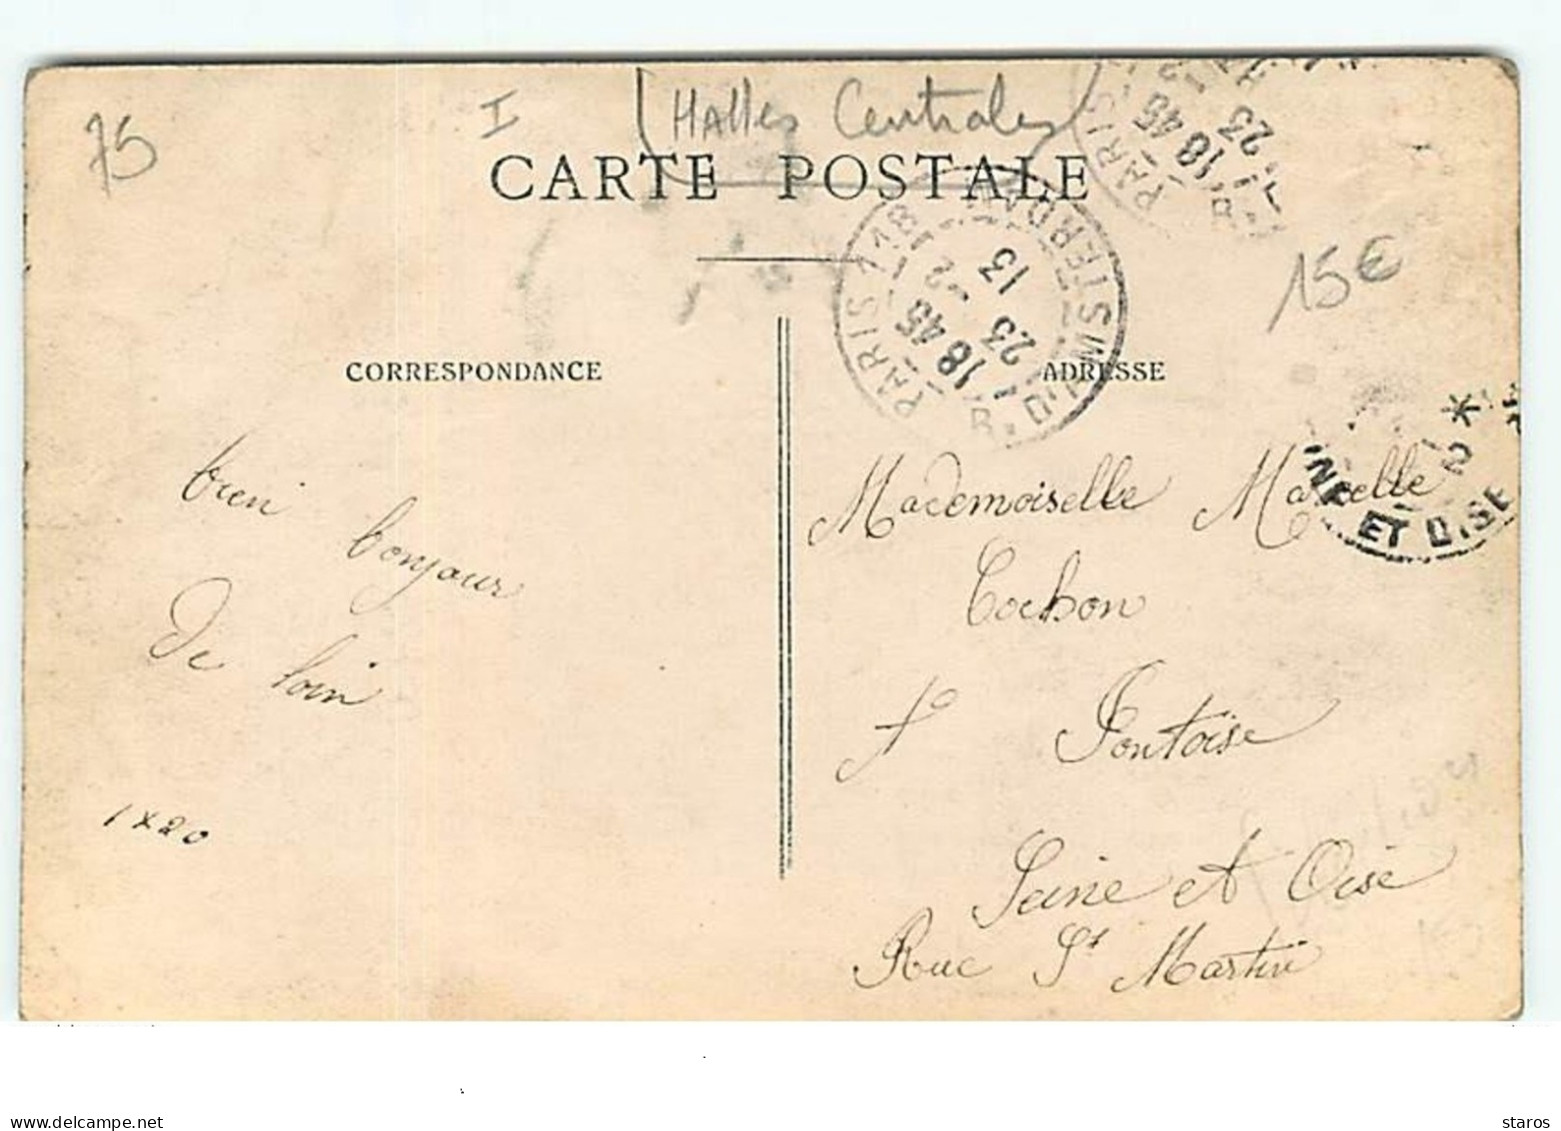 75
I
(Halles Centrales)
CARTE POSTALE
PARIS 118
18 45
23 -2
13
R. D'AMSTERDAM
PARIS
18 45
23 -2
15€
CORRESPONDANCE
ADRESSE
INE ET OISE
bien bonjour
De loin
1x20
Mademoiselle Marcelle
Cochon
Pontoise
Seine et Oise
Rue St Martin
www.delcampe.net
staros